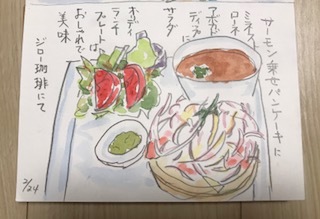 サーモン乗せパンケーキに
ミネストローネ
アボカド
ディップに
サラダ
ボディ
ランチ
プレートは
おしゃれで
美味
ジロー珈琲にて
2/24